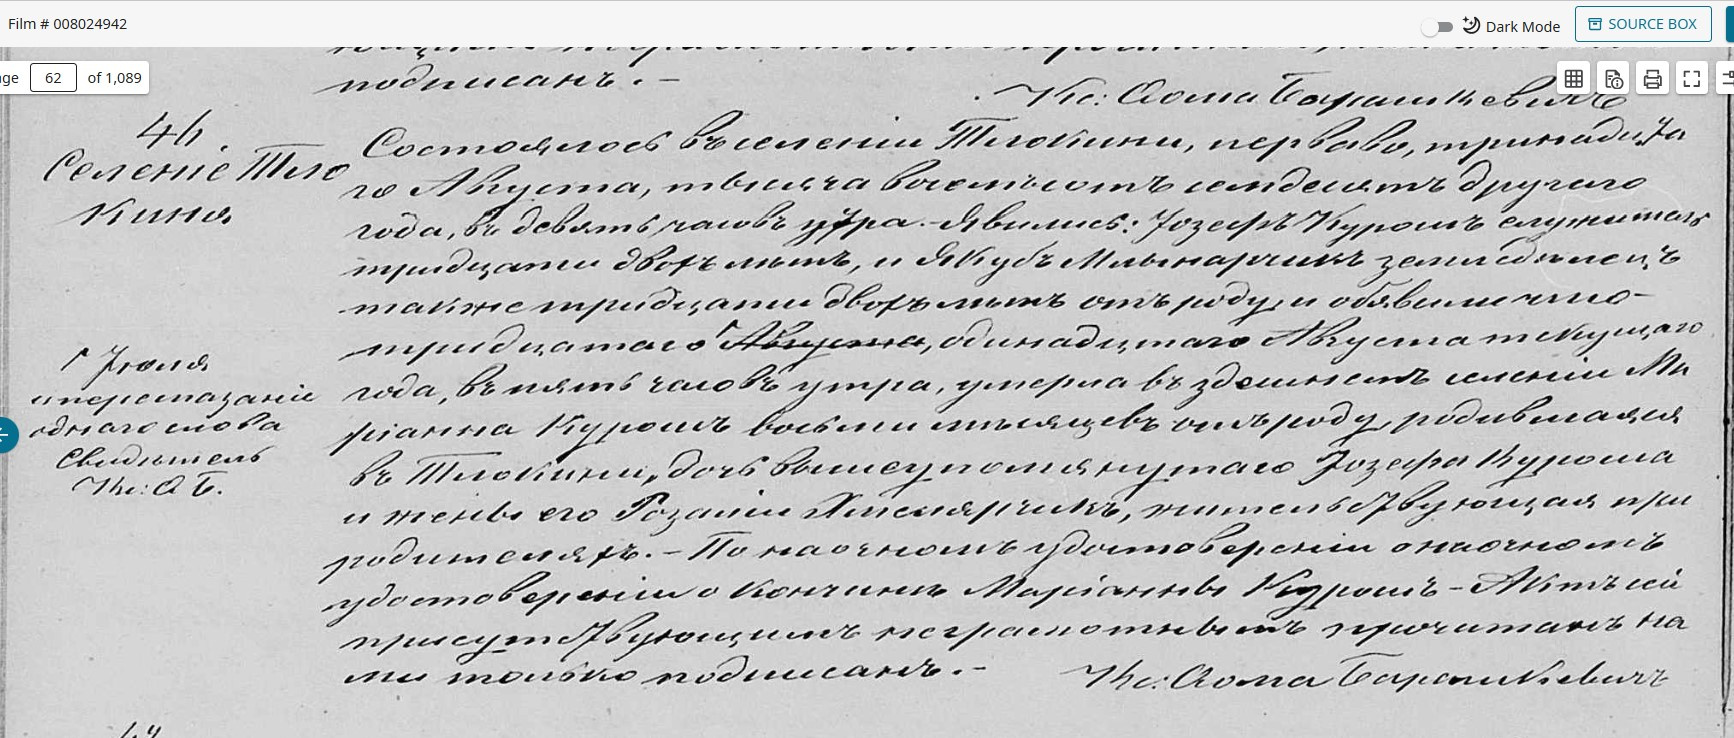 Film # 008024942
Dark Mode
SOURCE BOX
62 of 1,089
подписанъ. –
Кс: Ѳома Барашкевичъ
46
Селеніе Тло
киня
Состоялось въ селеніи Тлокини, перваго, тринадцата
го Августа, тысяча восемьсотъ семдесятъ другаго
года, въ девять часовъ утра. – Явились: Јозефъ Курошъ служитель
тридцати двохъ лѣтъ, и Якубъ Млынарчикъ земледѣлецъ
также тридцати двохъ лѣтъ отъ роду, и обявили что –
тридцатаго Августа, одинадцтаго Августа текущаго
года, въ пять часовъ утра, умерла въ здешнемъ селеніи Ма
ріанна Курошъ восьми мѣсяцевъ отъ роду, родившаяся
въ Тлокини, дочь вышеупомянутаго Јозефа Куроша
и жены его Розаліи Хмелярчикъ, жительствующая при
родителяхъ. – По наочномъ удостоверении о наочномъ
удостовереніи о кончинѣ Маріанны Курошъ – Актъ сей
присутствующимъ неграмотнымъ прочитанъ на
ми только подписанъ. –
Кс: Ѳома Барашкевичъ
Јюля
и перемазаніе
однаго слова
Свидѣтель
Кс: Ѳ Б.